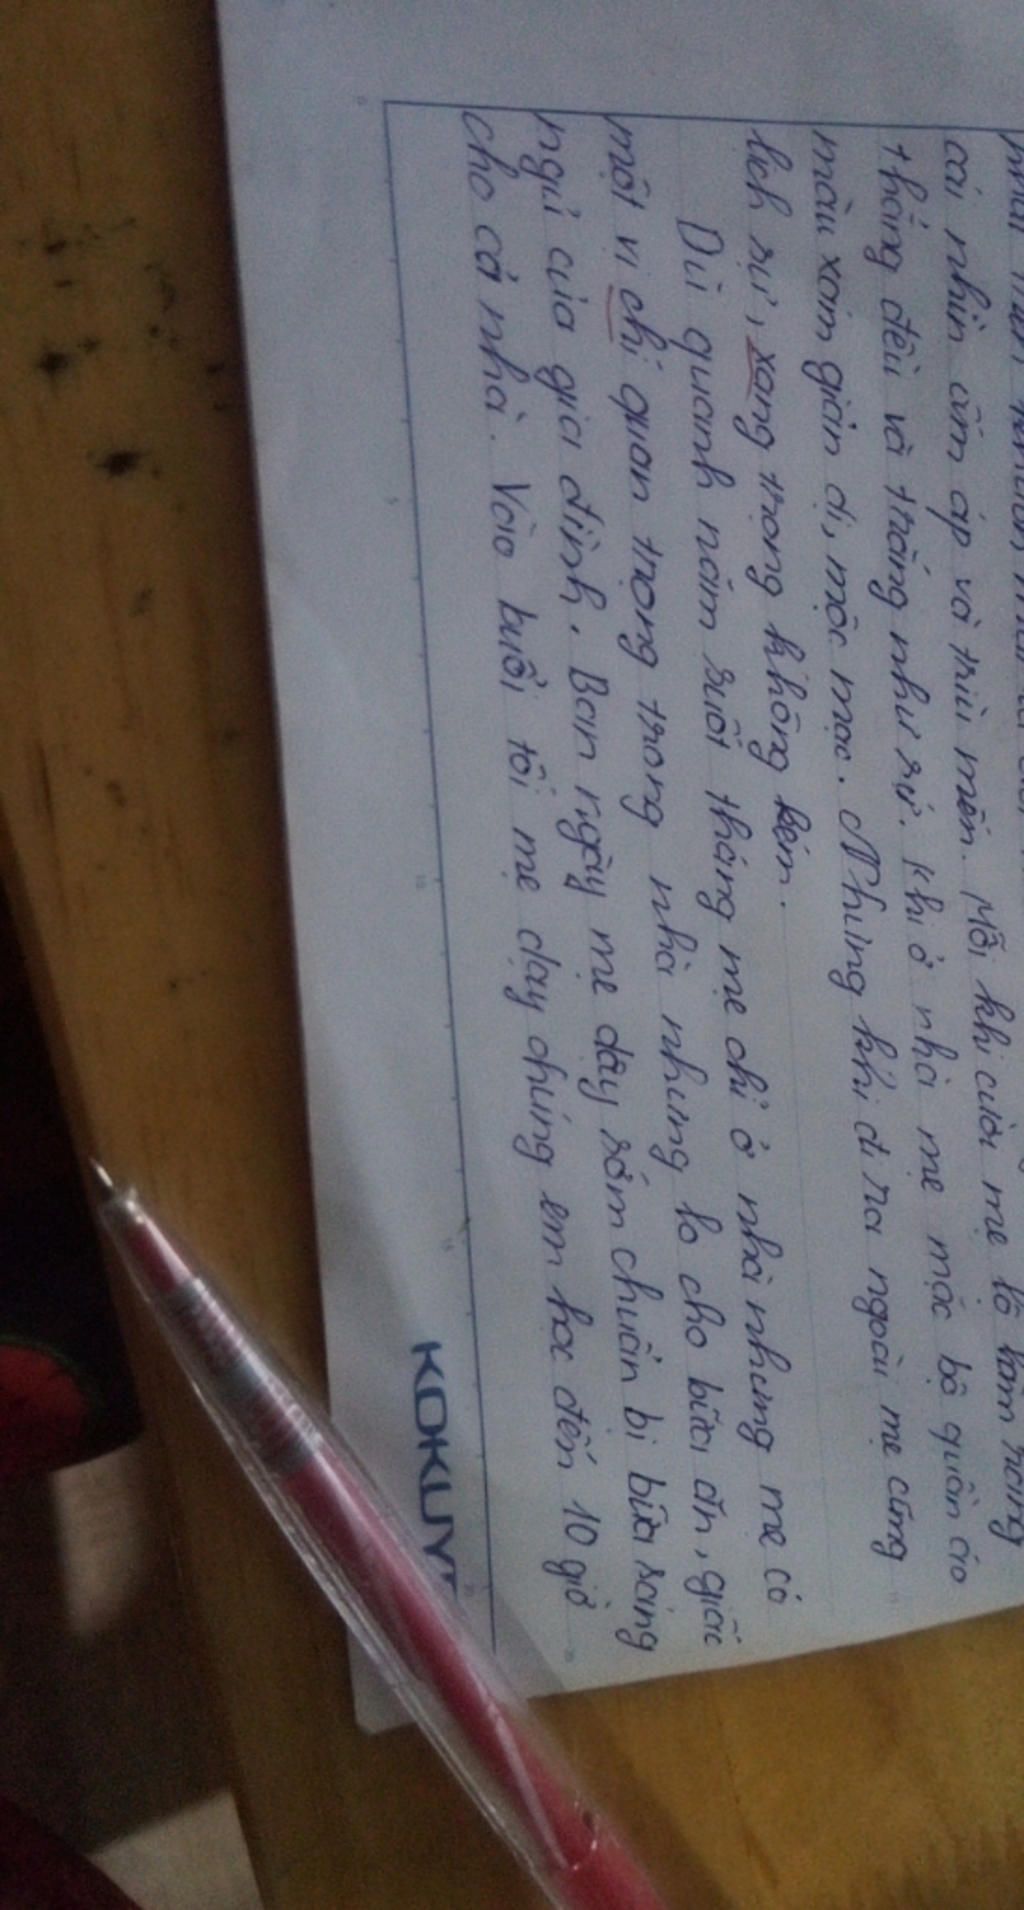 cái nhìn ấm áp và trìu mến. Mỗi khi cười mẹ lộ hàm răng
thẳng đều và trắng như sứ. Khi ở nhà mẹ mặc bộ quần áo
màu xám giản dị, mộc mạc. Nhưng khi đi ra ngoài mẹ cũng
lịch sự, xang trọng không kém.
Dù quanh năm suốt tháng mẹ chỉ ở nhà nhưng mẹ có
một vị chí quan trọng trong nhà nhưng lo cho bữa ăn, giấc
ngủ của gia đình. Ban ngày mẹ dậy sớm chuẩn bị bữa sáng
cho cả nhà. Vào buổi tối mẹ dạy chúng em học đến 10 giờ
KOKUY